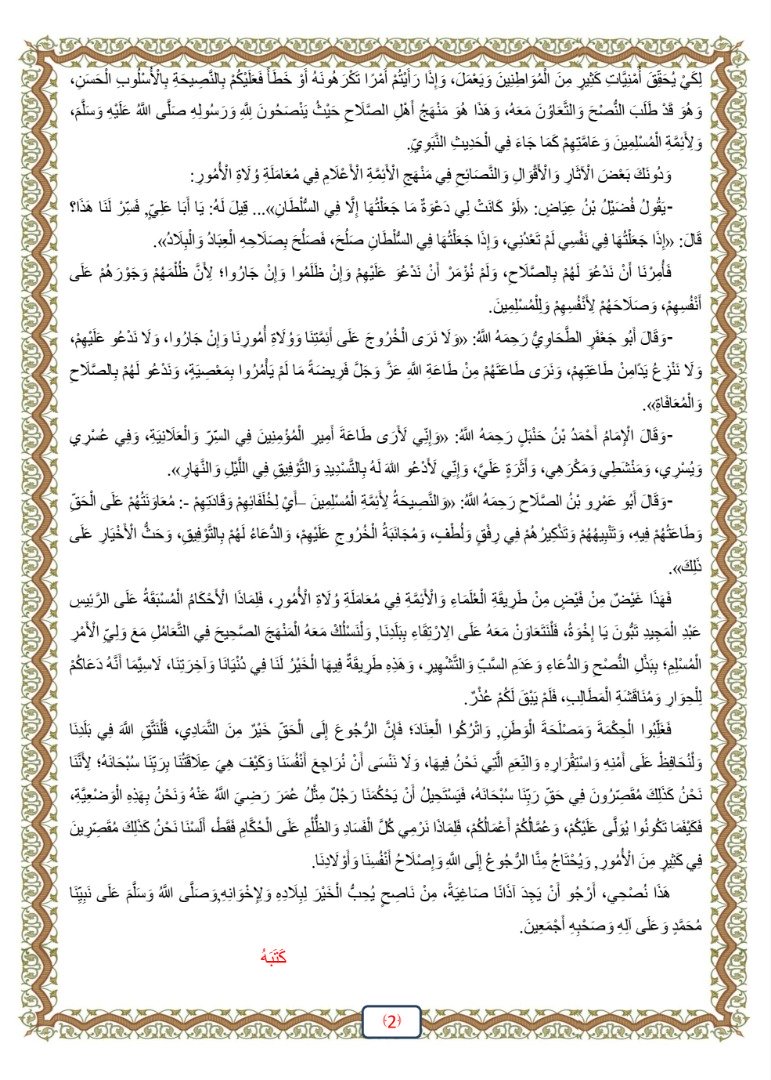 لِكَيْ يُحَقِّقَ أُمْنِيَّاتِ كَثِيرٍ مِنَ الْمُوَاطِنِينَ وَيَعْمَلَ، وَإِذَا رَأَيْتُمْ أَمْرًا تَكْرَهُونَهُ أَوْ خَطَأً فَعَلَيْكُمْ بِالنَّصِيحَةِ بِالْأُسْلُوبِ الْحَسَنِ،
وَهُوَ قَدْ طَلَبَ النُّصْحَ وَالتَّعَاوُنَ مَعَهُ، وَهَذَا هُوَ مَنْهَجُ أَهْلِ الصَّلَاحِ حَيْثُ يَنْصَحُونَ لِلَّهِ وَرَسُولِهِ صَلَّى اللَّهُ عَلَيْهِ وَسَلَّمَ،
وَلِأَئِمَّةِ الْمُسْلِمِينَ وَعَامَّتِهِمْ كَمَا جَاءَ فِي الْحَدِيثِ النَّبَوِيِّ.
وَدُونَكَ بَعْضَ الْآثَارِ وَالْأَقْوَالِ وَالنَّصَائِحِ فِي مَنْهَجِ الْأَئِمَّةِ الْأَعْلَامِ فِي مُعَامَلَةِ وُلَاةِ الْأُمُورِ:
-يَقُولُ فُضَيْلُ بْنُ عِيَاضٍ: «لَوْ كَانَتْ لِي دَعْوَةٌ مَا جَعَلْتُهَا إِلَّا فِي السُّلْطَانِ»... قِيلَ لَهُ: يَا أَبَا عَلِيٍّ, فَسِّرْ لَنَا هَذَا؟
قَالَ: «إِذَا جَعَلْتُهَا فِي نَفْسِي لَمْ تَعْدُنِي، وَإِذَا جَعَلْتُهَا فِي السُّلْطَانِ صَلُحَ، فَصَلُحَ بِصَلَاحِهِ الْعِبَادُ وَالْبِلَادُ».
فَأُمِرْنَا أَنْ نَدْعُوَ لَهُمْ بِالصَّلَاحِ، وَلَمْ نُؤْمَرْ أَنْ نَدْعُوَ عَلَيْهِمْ وَإِنْ ظَلَمُوا وَإِنْ جَارُوا؛ لِأَنَّ ظُلْمَهُمْ وَجَوْرَهُمْ عَلَى
أَنْفُسِهِمْ، وَصَلَاحَهُمْ لِأَنْفُسِهِمْ وَلِلْمُسْلِمِينَ.
-وَقَالَ أَبُو جَعْفَرٍ الطَّحَاوِيُّ رَحِمَهُ اللَّهُ: «وَلَا نَرَى الْخُرُوجَ عَلَى أَئِمَّتِنَا وَوُلَاةِ أُمُورِنَا وَإِنْ جَارُوا، وَلَا نَدْعُو عَلَيْهِمْ،
وَلَا نَنْزِعُ يَدًامِنْ طَاعَتِهِمْ، وَنَرَى طَاعَتَهُمْ مِنْ طَاعَةِ اللَّهِ عَزَّ وَجَلَّ فَرِيضَةً مَا لَمْ يَأْمُرُوا بِمَعْصِيَةٍ، وَنَدْعُو لَهُمْ بِالصَّلَاحِ
وَالْمُعَافَاةِ».
-وَقَالَ الْإِمَامُ أَحْمَدُ بْنُ حَنْبَلٍ رَحِمَهُ اللَّهُ: «وَإِنِّي لَأَرَى طَاعَةَ أَمِيرِ الْمُؤْمِنِينَ فِي السِّرِّ وَالْعَلَانِيَةِ، وَفِي عُسْرِي
وَيُسْرِي، وَمَنْشَطِي وَمَكْرَهِي، وَأَثَرَةٍ عَلَيَّ، وَإِنِّي لَأَدْعُو اللهَ لَهُ بِالتَّسْدِيدِ وَالتَّوْفِيقِ فِي اللَّيْلِ وَالنَّهَارِ».
-وَقَالَ أَبُو عَمْرِو بْنُ الصَّلَاحِ رَحِمَهُ اللَّهُ: «وَالنَّصِيحَةُ لِأَئِمَّةِ الْمُسْلِمِينَ –أَيْ لِخُلَفَائِهِمْ وَقَادَتِهِمْ -: مُعَاوَنَتُهُمْ عَلَى الْحَقِّ
وَطَاعَتُهُمْ فِيهِ، وَتَنْبِيهُهُمْ وَتَذْكِيرُهُمْ فِي رِفْقٍ وَلُطْفٍ، وَمُجَانَبَةُ الْخُرُوجِ عَلَيْهِمْ، وَالدُّعَاءُ لَهُمْ بِالتَّوْفِيقِ، وَحَثُّ الْأَخْيَارِ عَلَى
ذَلِكَ».
فَهَذَا غَيْضٌ مِنْ فَيْضٍ مِنْ طَرِيقَةِ الْعُلَمَاءِ وَالْأَئِمَّةِ فِي مُعَامَلَةِ وُلَاةِ الْأُمُورِ، فَلِمَاذَا الْأَحْكَامُ الْمُسْبَقَةُ عَلَى الرَّئِيسِ
عَبْدِ الْمَجِيدِ تَبُّونَ يَا إِخْوَةُ، فَلْنَتَعَاوَنْ مَعَهُ عَلَى الِارْتِقَاءِ بِبَلَدِنَا, وَلْنَسْلُكْ مَعَهُ الْمَنْهَجَ الصَّحِيحَ فِي التَّعَامُلِ مَعَ وَلِيِّ الْأَمْرِ
الْمُسْلِمِ؛ بِبَذْلِ النُّصْحِ وَالدُّعَاءِ وَعَدَمِ السَّبِّ وَالتَّشْهِيرِ، وَهَذِهِ طَرِيقَةٌ فِيهَا الْخَيْرُ لَنَا فِي دُنْيَانَا وَآخِرَتِنَا، لَاسِيَّمَا أَنَّهُ دَعَاكُمْ
لِلْحِوَارِ وَمُنَاقَشَةِ الْمَطَالِبِ، فَلَمْ يَبْقَ لَكُمْ عُذْرٌ.
فَغَلِّبُوا الْحِكْمَةَ وَمَصْلَحَةَ الْوَطَنِ, وَاتْرُكُوا الْعِنَادَ؛ فَإِنَّ الرُّجُوعَ إِلَى الْحَقِّ خَيْرٌ مِنَ التَّمَادِي، فَلْنَتَّقِ اللَّهَ فِي بَلَدِنَا
وَلْنُحَافِظْ عَلَى أَمْنِهِ وَاسْتِقْرَارِهِ وَالنِّعَمِ الَّتِي نَحْنُ فِيهَا، وَلَا نَنْسَى أَنْ نُرَاجِعَ أَنْفُسَنَا وَكَيْفَ هِيَ عِلَاقَتُنَا بِرَبِّنَا سُبْحَانَهُ؛ لِأَنَّنَا
نَحْنُ كَذَلِكَ مُقَصِّرُونَ فِي حَقِّ رَبِّنَا سُبْحَانَهُ، فَيَسْتَحِيلُ أَنْ يَحْكُمَنَا رَجُلٌ مِثْلُ عُمَرَ رَضِيَ اللَّهُ عَنْهُ وَنَحْنُ بِهَذِهِ الْوَضْعِيَّةِ,
فَكَيْفَمَا تَكُونُوا يُوَلَّى عَلَيْكُمْ، وَعُمَّالُكُمْ أَعْمَالُكُمْ، فَلِمَاذَا نَرْمِي كُلَّ الْفَسَادِ وَالظُّلْمِ عَلَى الْحُكَّامِ فَقَطْ، أَلَسْنَا نَحْنُ كَذَلِكَ مُقَصِّرِينَ
فِي كَثِيرٍ مِنَ الْأُمُورِ, وَيُحْتَاجُ مِنَّا الرُّجُوعُ إِلَى اللَّهِ وَإِصْلَاحُ أَنْفُسِنَا وَأَوْلَادِنَا.
هَذَا نُصْحِي، أَرْجُو أَنْ يَجِدَ آذَانًا صَاغِيَةً، مِنْ نَاصِحٍ يُحِبُّ الْخَيْرَ لِبِلَادِهِ وَلِإِخْوَانِهِ,وَصَلَّى اللَّهُ وَسَلَّمَ عَلَى نَبِيِّنَا
مُحَمَّدٍ وَعَلَى آلِهِ وَصَحْبِهِ أَجْمَعِينَ.
كَتَبَهُ
(2)